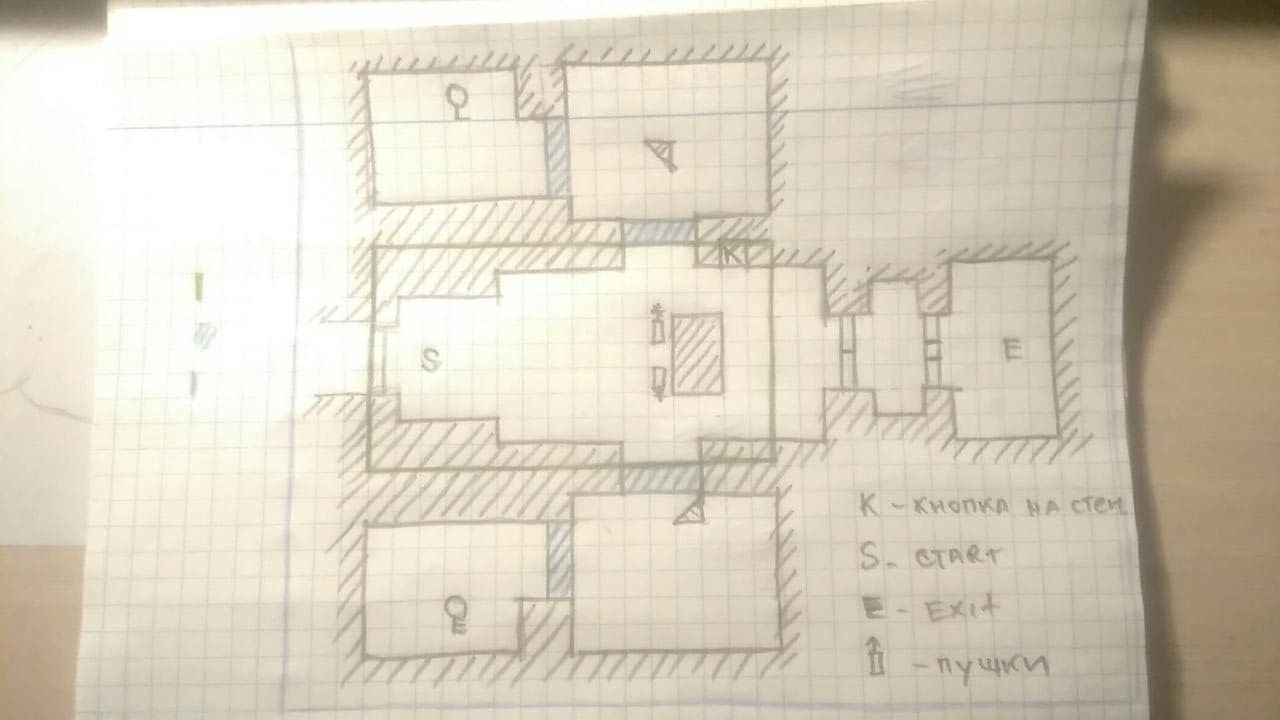 K
S
E
K - КНОПКА НА СТЕН
S - START
E - EXIt
- ПУШКИ